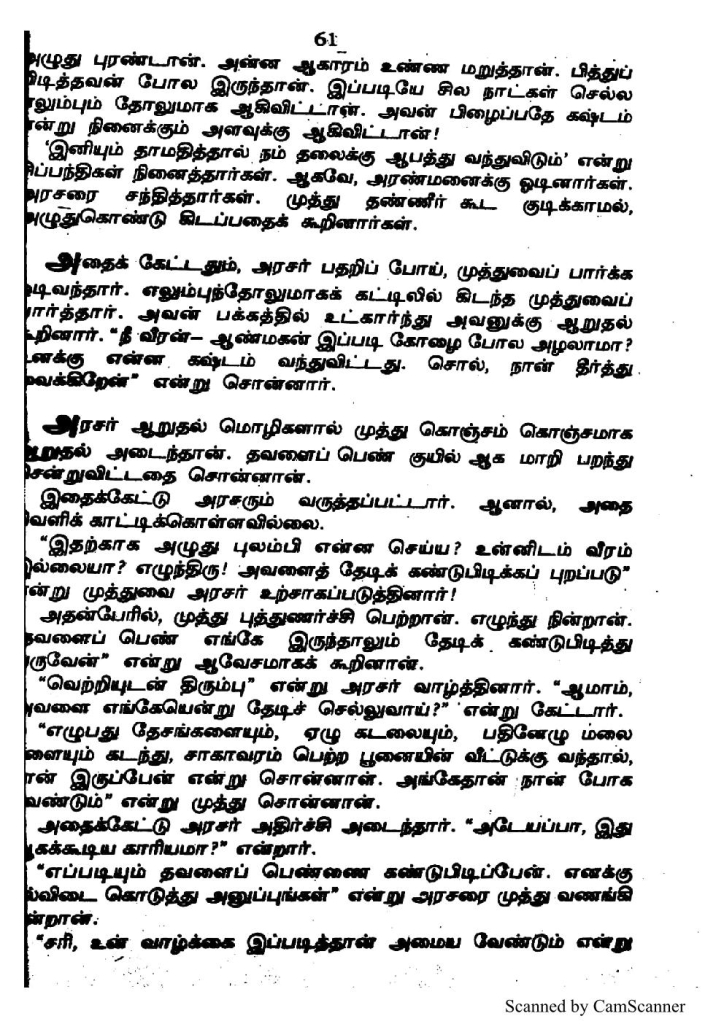 61
அழுது புரண்டான். அன்ன ஆகாரம் உண்ண மறுத்தான். பித்துப்
பிடித்தவன் போல இருந்தான். இப்படியே சில நாட்கள் செல்ல
எலும்பும் தோலுமாக ஆகிவிட்டான். அவன் பிழைப்பதே கஷ்டம்
என்று நினைக்கும் அளவுக்கு ஆகிவிட்டான்!
'இனியும் தாமதித்தால் நம் தலைக்கு ஆபத்து வந்துவிடும்' என்று
சிப்பந்திகள் நினைத்தார்கள். ஆகவே, அரண்மனைக்கு ஓடினார்கள்.
அரசரை சந்தித்தார்கள். முத்து தண்ணீர் கூட குடிக்காமல்,
அழுதுகொண்டு கிடப்பதைக் கூறினார்கள்.
அதைக் கேட்டதும், அரசர் பதறிப் போய், முத்துவைப் பார்க்க
ஓடிவந்தார். எலும்புந்தோலுமாகக் கட்டிலில் கிடந்த முத்துவைப்
பார்த்தார். அவன் பக்கத்தில் உட்கார்ந்து அவனுக்கு ஆறுதல்
கூறினார். "நீ வீரன்– ஆண்மகன் இப்படி கோழை போல அழலாமா?
உனக்கு என்ன கஷ்டம் வந்துவிட்டது. சொல், நான் தீர்த்து
வைக்கிறேன்" என்று சொன்னார்.
அரசர் ஆறுதல் மொழிகளால் முத்து கொஞ்சம் கொஞ்சமாக
ஆறுதல் அடைந்தான். தவளைப் பெண் குயில் ஆக மாறி பறந்து
சென்றுவிட்டதை சொன்னான்.
இதைக்கேட்டு அரசரும் வருத்தப்பட்டார். ஆனால், அதை
வெளிக் காட்டிக்கொள்ளவில்லை.
"இதற்காக அழுது புலம்பி என்ன செய்ய? உன்னிடம் வீரம்
இல்லையா? எழுந்திரு! அவளைத் தேடிக் கண்டுபிடிக்கப் புறப்படு"
என்று முத்துவை அரசர் உற்சாகப்படுத்தினார்!
அதன்பேரில், முத்து புத்துணர்ச்சி பெற்றான். எழுந்து நின்றான்.
தவளைப் பெண் எங்கே இருந்தாலும் தேடிக் கண்டுபிடித்து
வருவேன்" என்று ஆவேசமாகக் கூறினான்.
"வெற்றியுடன் திரும்பு" என்று அரசர் வாழ்த்தினார். "ஆமாம்,
அவளை எங்கேயென்று தேடிச் செல்லுவாய்?" என்று கேட்டார்.
"எழுபது தேசங்களையும், ஏழு கடலையும், பதினேழு மலை
களையும் கடந்து, சாகாவரம் பெற்ற பூனையின் வீட்டுக்கு வந்தால்,
நான் இருப்பேன் என்று சொன்னான். அங்கேதான் நான் போக
வேண்டும்" என்று முத்து சொன்னான்.
அதைக்கேட்டு அரசர் அதிர்ச்சி அடைந்தார். "அடேயப்பா, இது
ஆகக்கூடிய காரியமா?" என்றார்.
"எப்படியும் தவளைப் பெண்ணை கண்டுபிடிப்பேன். எனக்கு
நல்விடை கொடுத்து அனுப்புங்கள்" என்று அரசரை முத்து வணங்கி
நின்றான்.
"சரி, உன் வாழ்க்கை இப்படித்தான் அமைய வேண்டும் என்று
Scanned by CamScanner